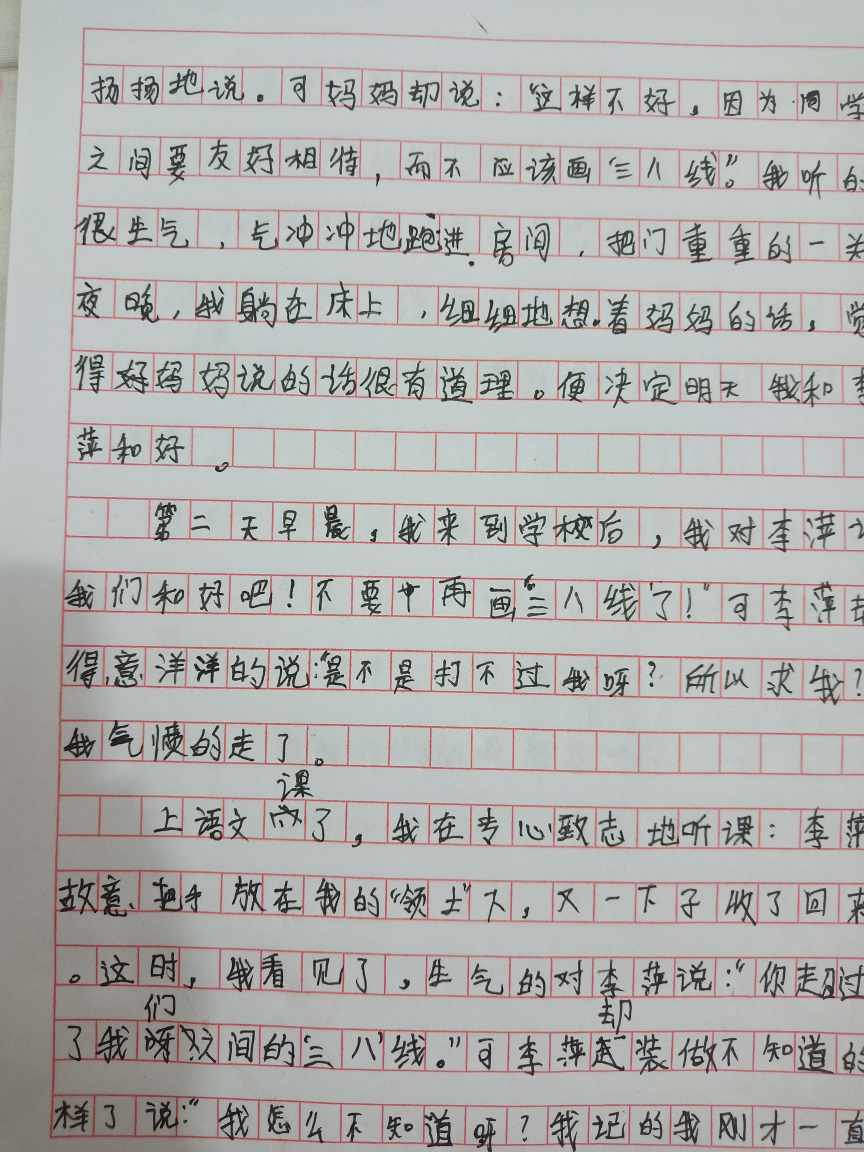 扬扬地说。可妈妈却说：“这样不好，因为同学
之间要友好相待，而不应该画“三八线”。我听的
很生气，气冲冲地跑进房间，把门重重的一关
夜晚，我躺在床上，细细地想着妈妈的话，觉
得好妈妈说的话很有道理。便决定明天我和李
萍和好。
第二天早晨，我来到学校后，我对李萍
我们和好吧！不要再画“三八线”了！”可李萍却
得意洋洋的说：“是不是打不过我呀？所以求我？
我气愤的走了。
上语文课了，我在专心致志地听课：李萍
故意把手放在我的“领土”下，又一下子收了回来
。这时，我看见了，生气的对李萍说：“你超过
了我们之间的“三八”线。”可李萍却装做不知道的
样了说：“我怎么不知道呀？我记的我刚才一直